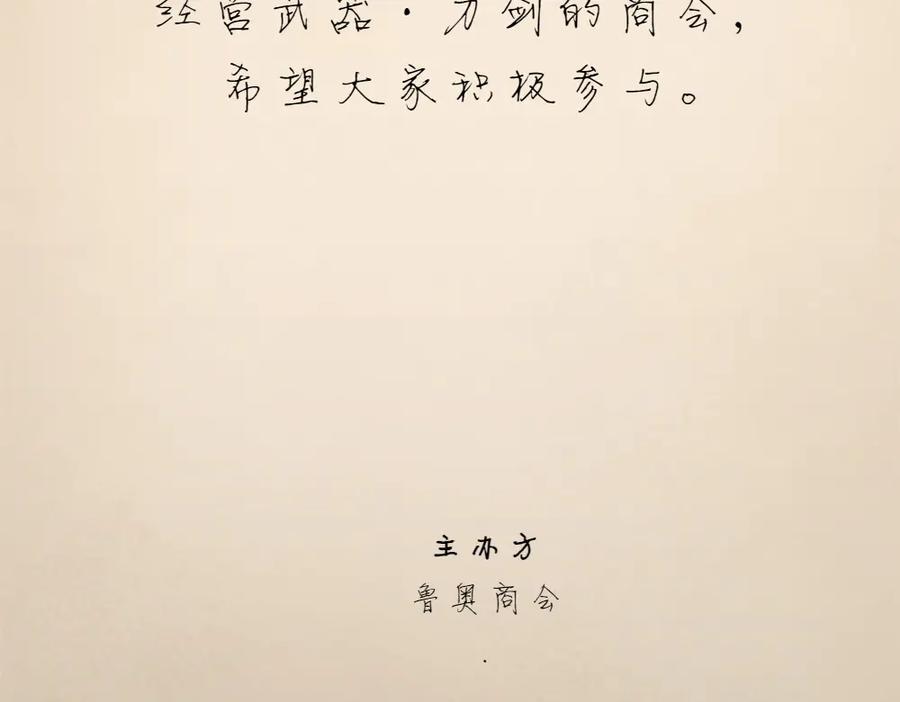 经营武器·刀剑的商会，
希望大家积极参与。
主办方
鲁奥商会